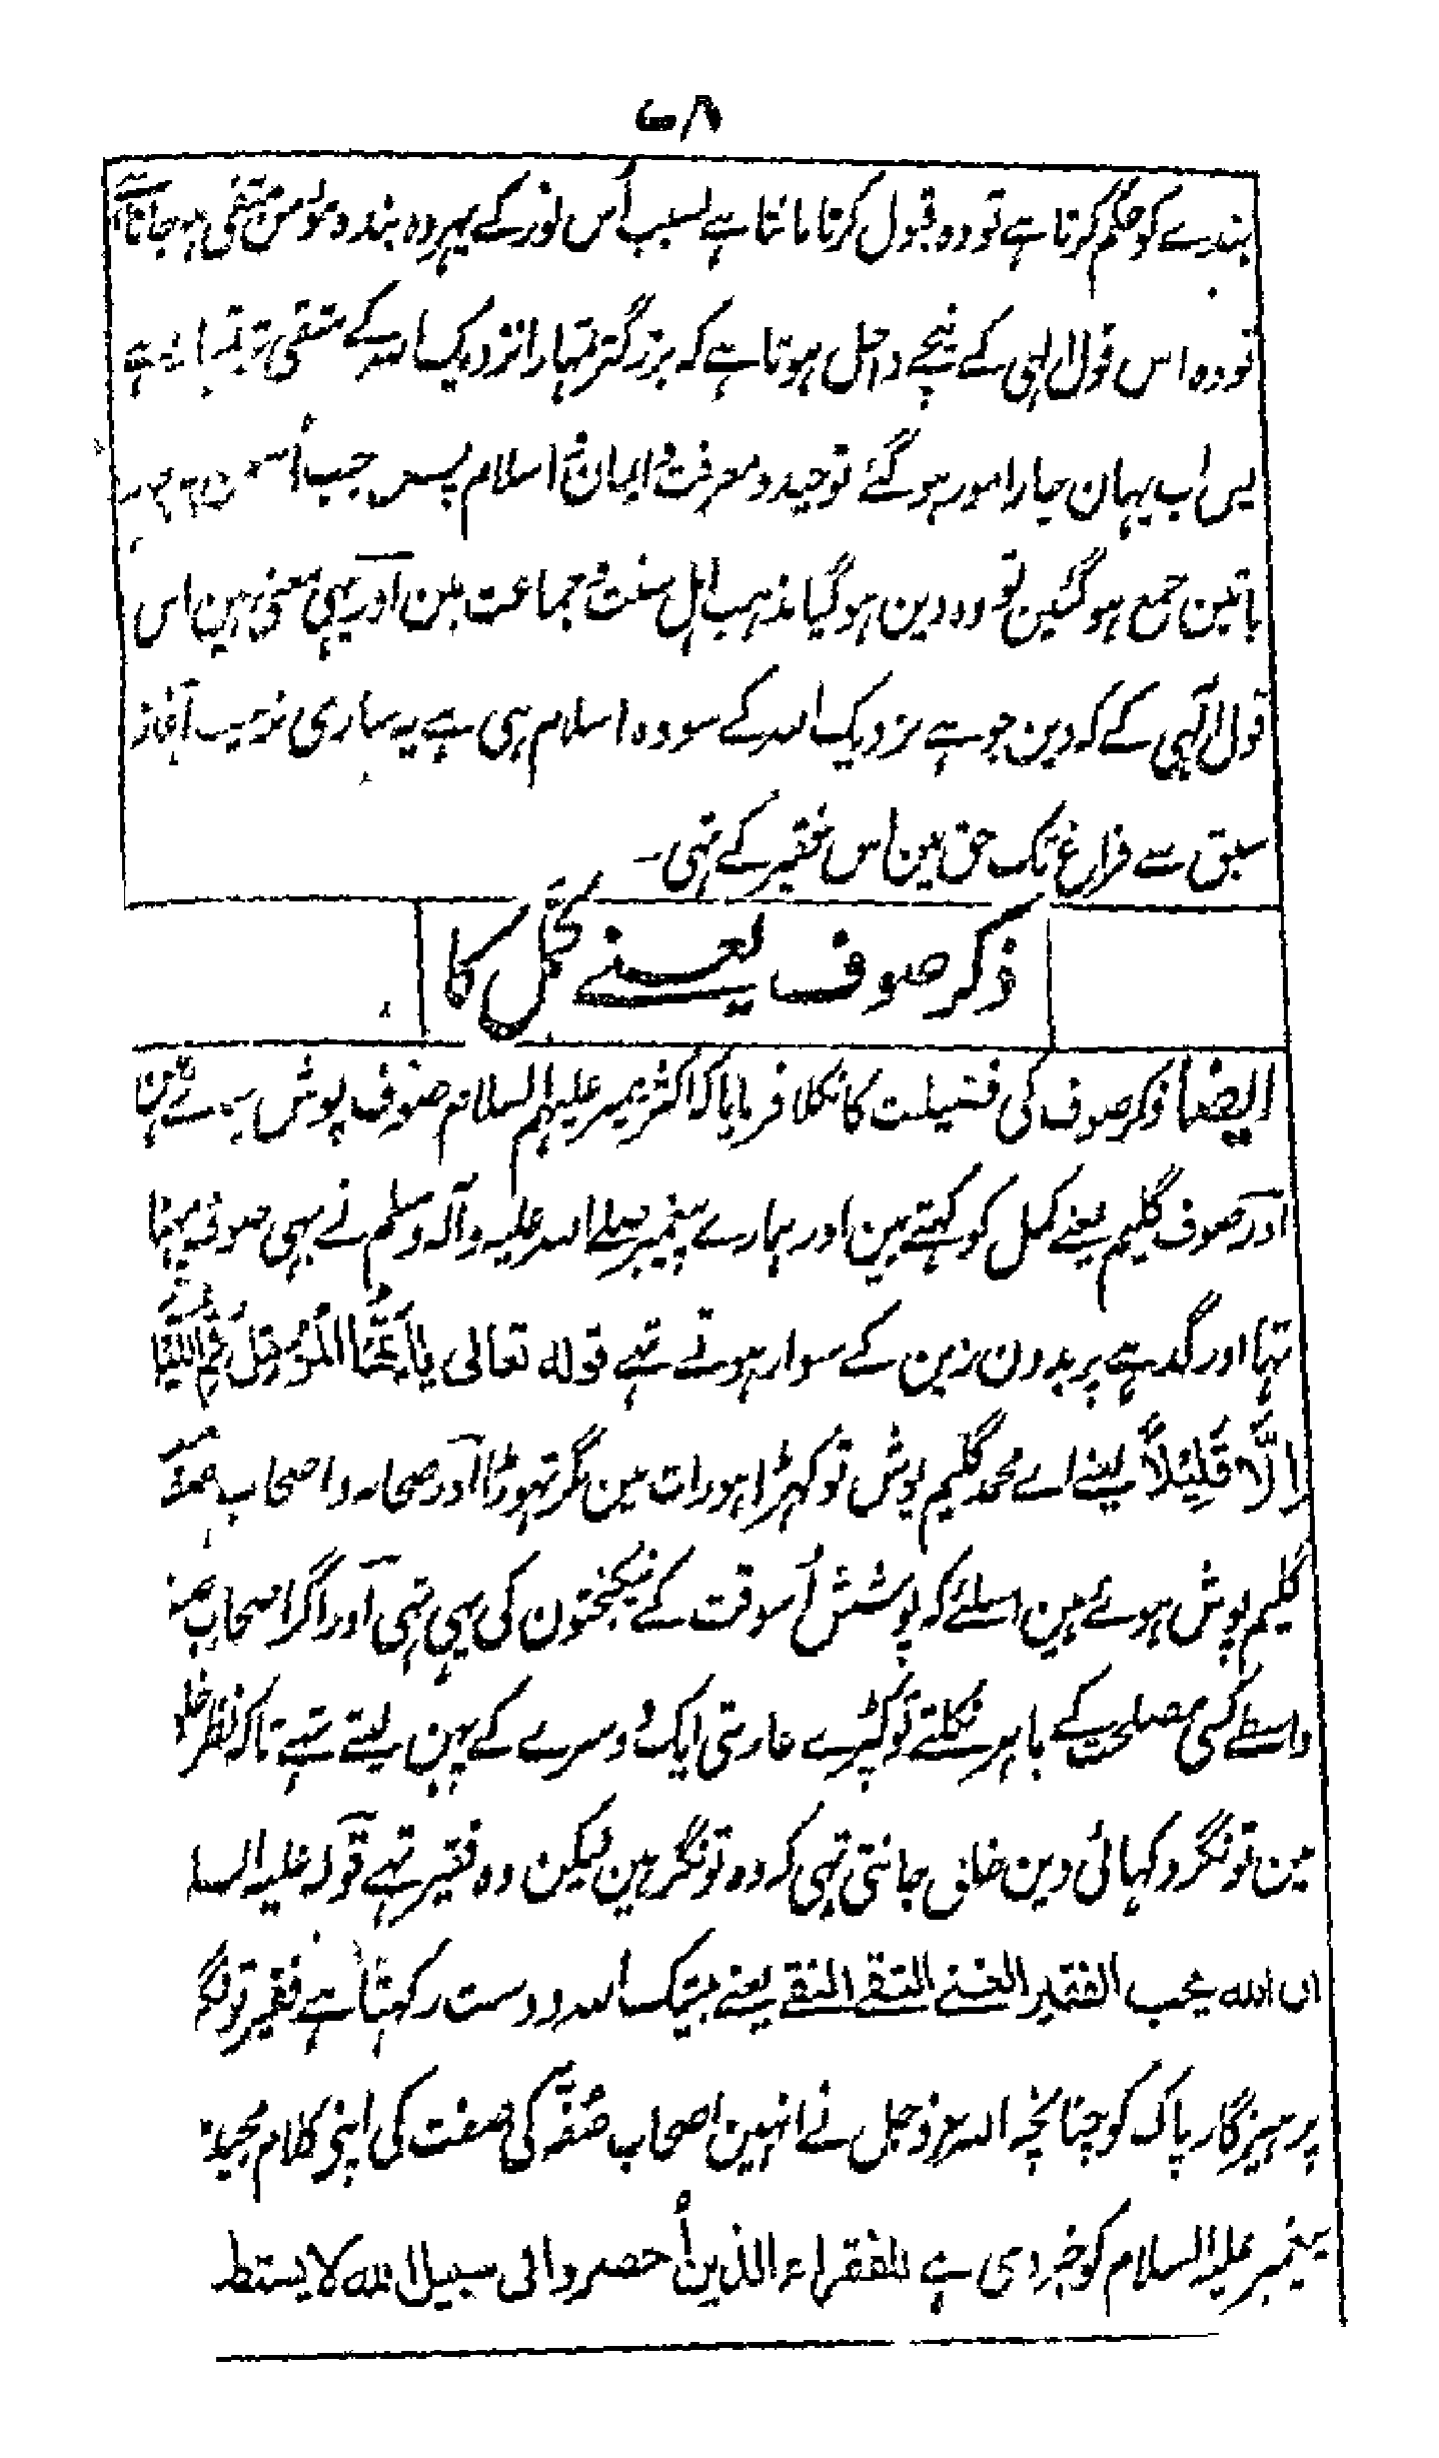 ۶۸
بندے کو حکم کرتا ہے تو وہ قبول کرتا مانتا ہے بسبب اُس نور کے پہر وہ بندہ مؤمن متقی ہو جاتا ہے
تو وہ اس قول الہی کے نیچے داخل ہوتا ہے کہ بزرگتر تمہارا نزدیک اللہ کے متقی تر تمہارا ہے
پس اب یہان چار امور ہو گئے توحید و معرفت و ایمان و اسلام پس جب
باتین جمع ہو گئین تو وہ دین ہو گیا مذہب اہل سنت و جماعت مین اور یہی معنی ہین اس
قول الٰہی کے کہ دین جو ہے نزدیک اللہ کے سو وہ اسلام ہی ہے یہ ساری ترتیب آغاز
سبق سے فراغ تک حق مین اس فقیر کے تہی۔
ذکر صوف یعنے کمّل کا
ایضاً ذکر صوف کی فضیلت کا نکلا فرمایا کہ اکثر پیمبر علیہم السلام صوف پوش ہوئے ہین
اور صوف گلیم یعنے کمل کو کہتے ہین اور ہمارے پیغمبر صلے اللہ علیہ وآلہ وسلم نے بہی صوف پہنا
تہا اور گدہے پر بدون زین کے سوار ہوتے تہے قوله تعالی یا اَیُّهَا الْمُزَّمِّلُ قُمِ اللَّیْلَ
اِلَّا قَلِیْلاً یعنے اے محمد گلیم پوش تو کہڑا ہو رات مین مگر تہوڑا اور صحابہ و اصحاب صفہ
گلیم پوش ہوئے ہین اسلئے کہ پوشش اُسوقت کے نیکبختون کی یہی تہی اور اگر اصحاب صفہ
واسطے کسی مصلحت کے باہر نکلتے تو کپڑے عاریتی ایک دوسرے کے پہن لیتے تہے تاکہ نظر خلق
مین تونگر دکہائی دین خلق جانتی تہی کہ وہ تونگر ہین لیکن وہ فقیر تہے قوله علیه السلا
ان الله یحب الفقیر الغنے التقے النقے یعنے بیشک اللہ دوست رکہتا ہے فقیر تونگر
پرہیزگار پاک کو چنانچہ اللہ عزوجل نے انہین اصحاب صُفّہ کی صفت کی اپنی کلام مجید
پیغمبر علیہ السلام کو خبر دی ہے للفقراء الذین اُحصروا فی سبیل الله لا یستط